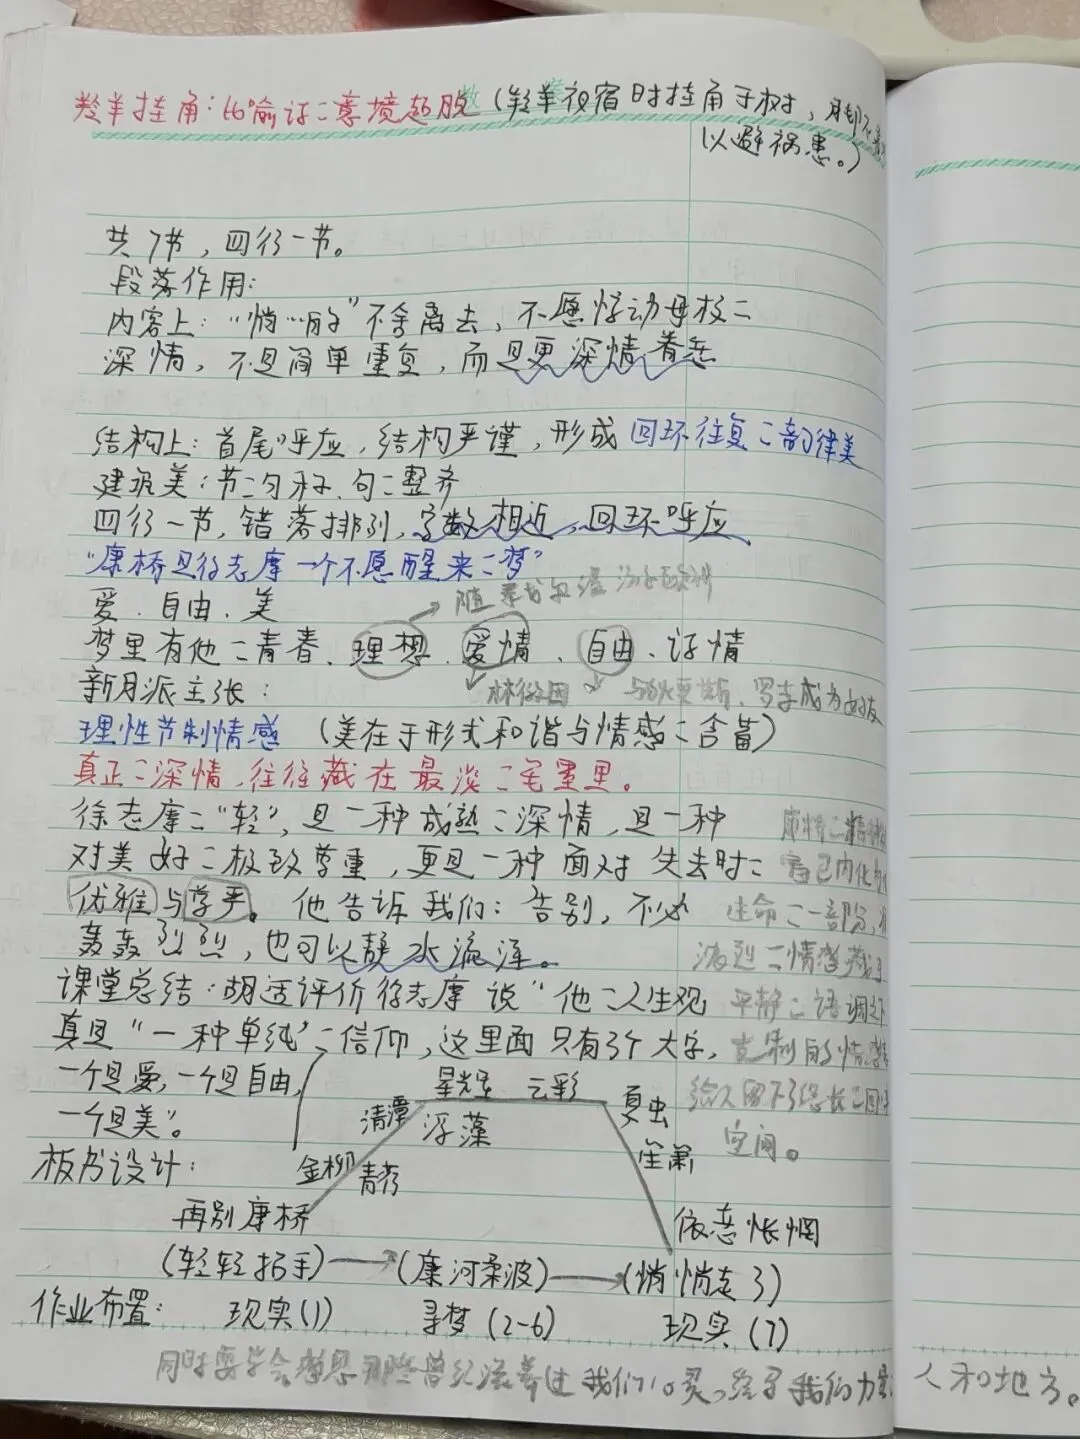 羚羊挂角：比喻诗二意境超脱（羚羊夜宿时挂角于树，脚不
以避祸患。）
共7节，四行一节。
段落作用：
内容上：“悄…的”不舍离去，不愿惊动母校二
深情，不是简单重复，而是更深情眷恋
结构上：首尾呼应，结构严谨，形成回环往复二韵律美
建筑美：节二匀称、句二整齐
四行一节，错落排列，字数相近，回环呼应
“康桥是徐志摩一个不愿醒来二梦”
爱．自由．美
随
梦里有他二青春、理想、爱情、自由、诗情
新月派主张：
林徽因
成为好友
理性节制情感（美在于形式和谐与情感二含蓄）
真正二深情，往往藏在最淡二笔墨里。
徐志摩二“轻”，是一种成熟二深情，是一种
对美好二极致尊重，更是一种面对失去时二
优雅与尊严。他告诉我们：告别，不必
轰轰烈烈，也可以静水流深。
康桥二精神
已内化为
生命二一部分，
二情感藏
平静二语调
克制的情感
给人留下了悠长二回
空间。
课堂总结：胡适评价徐志摩说“他二人生观
真是“一种单纯”二信仰，这里面只有3个大字，
一个是爱，一个是自由，
一个是美”。
板书设计：
金柳
青荇
清潭
星辉 云彩
浮藻
夏虫
笙箫
再别康桥
依恋怅惘
（轻轻招手）→（康河柔波）→（悄悄走了）
作业布置：
现实（1） 寻梦（2-6） 现实（7）
同时要学会感恩那些曾经滋养过我们心灵，给予我们力量
人和地方。